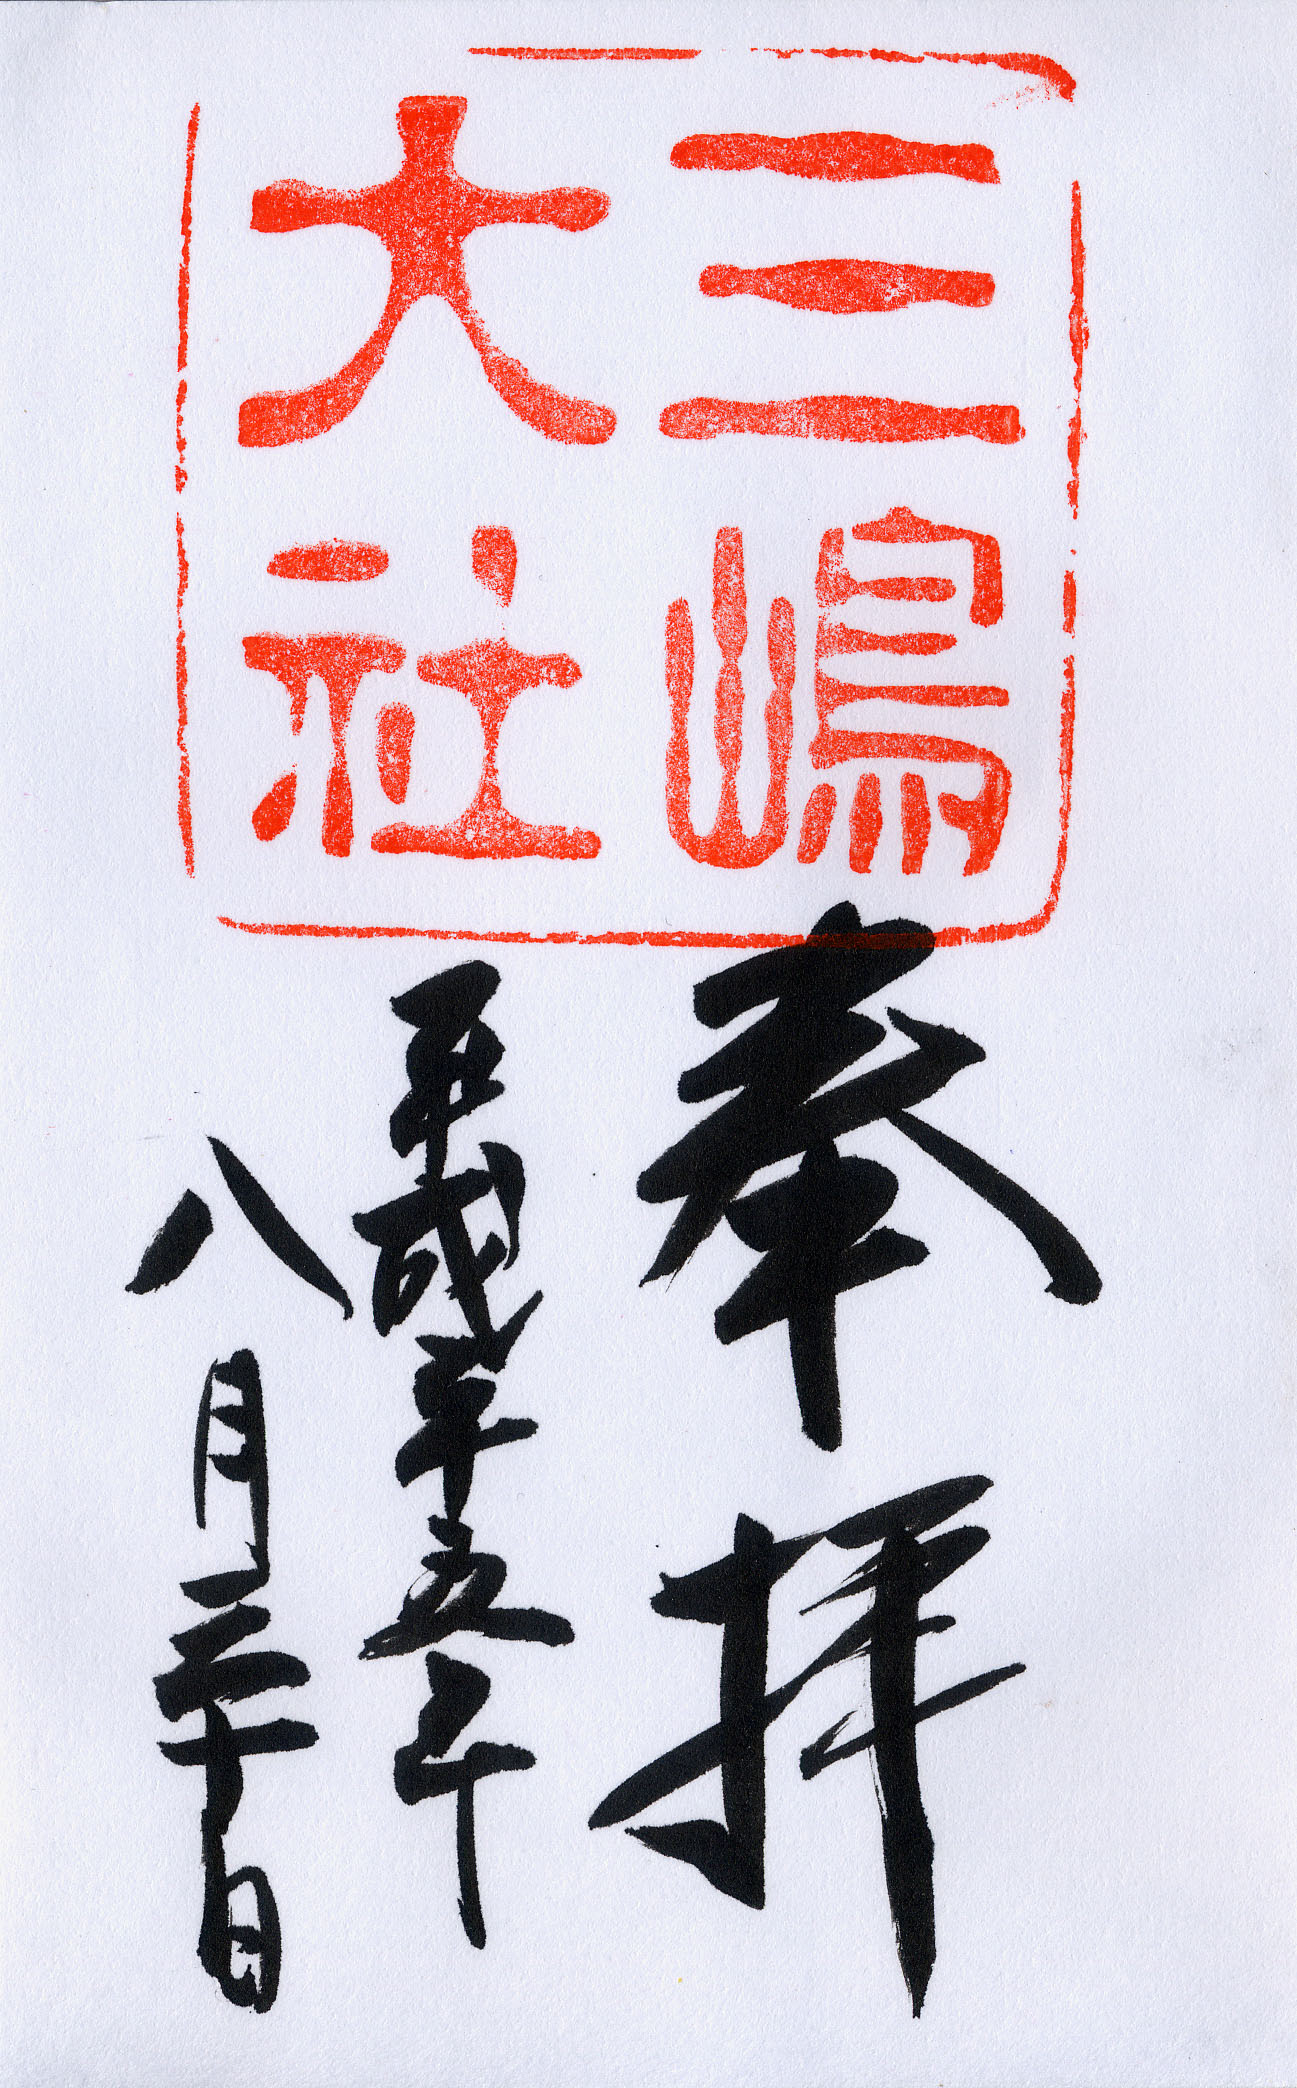 三嶋
大社
奉拝
平成二十五年
八月三十日